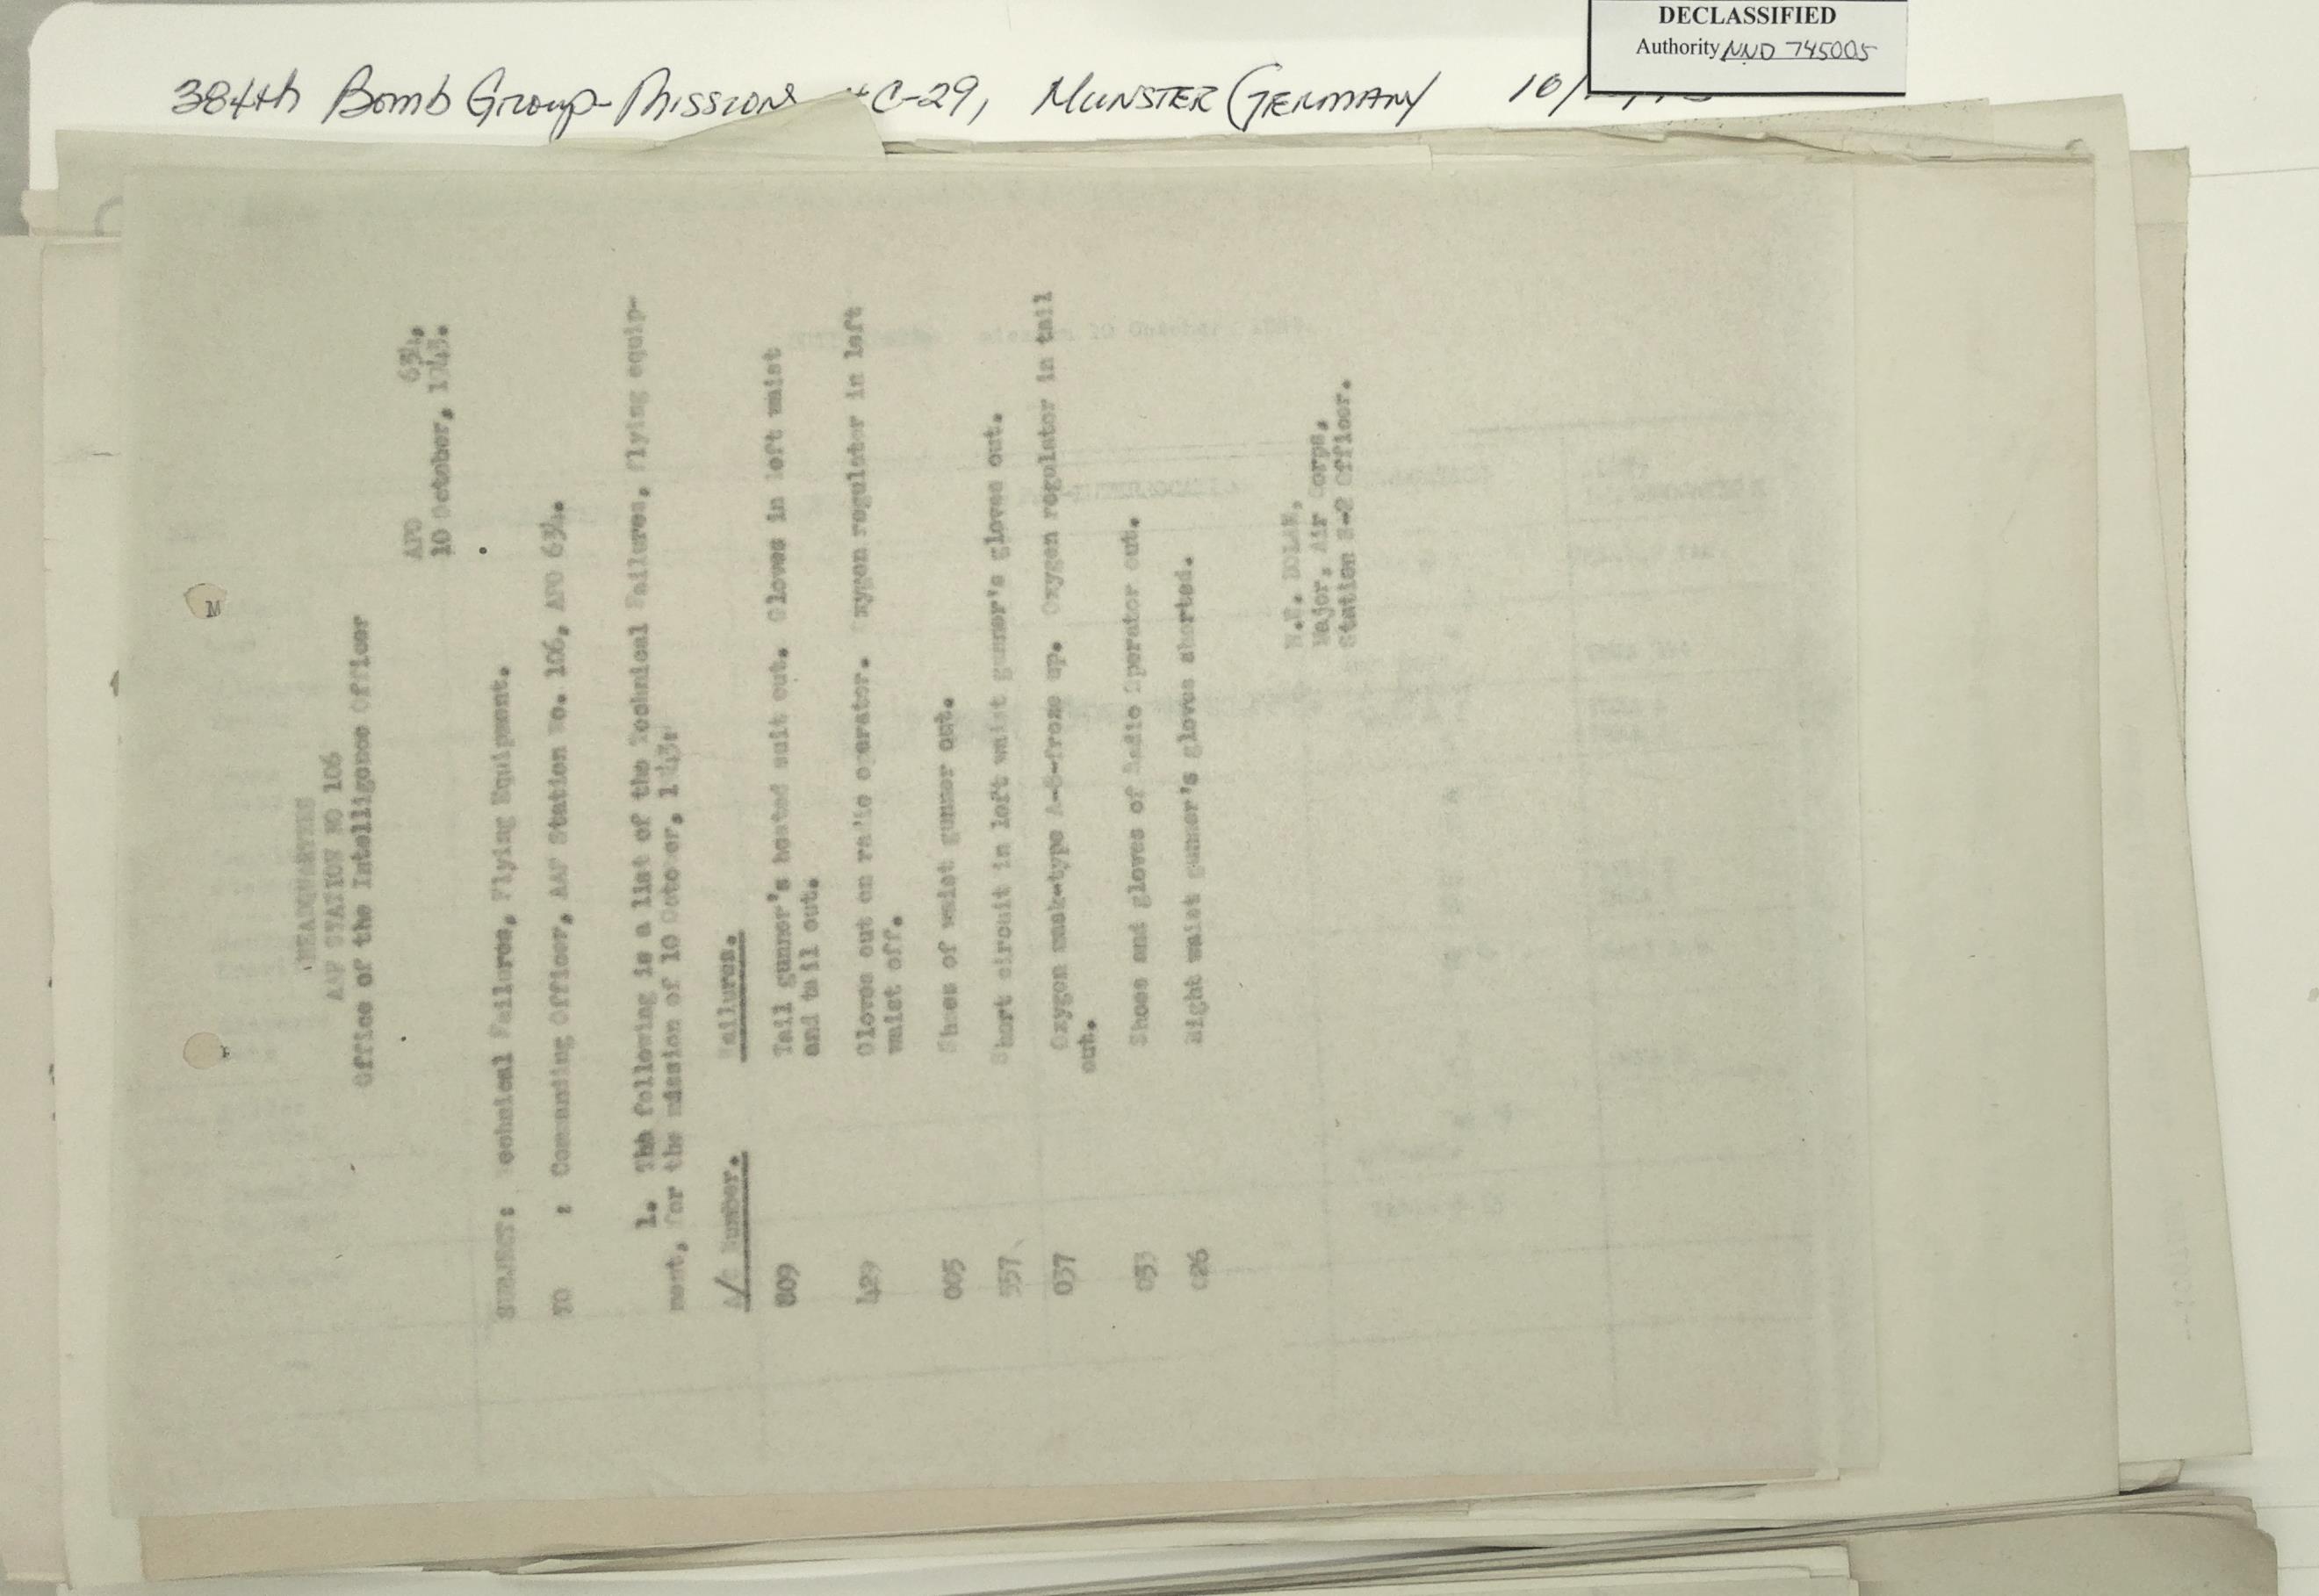 DECLASSIFIED
Authority NND 745005
384th Bomb Group-Mission #C-29, MUNSTER GERMANY 10/
HEADQUARTERS
AAF STATION NO 106
Office of the Intelligence Officer
APO 634,
10 October, 1943.
SUBJECT: Technical Failures, Flying Equipment.
TO : Commanding Officer, AAF Station No. 106, APO 634.
1. Thh following is a list of the Technical Failures, Flying equip-
ment, for the mission of 10 October, 1943:
A/C Number. Failures.
809 Tail gunner's heated suit out. Gloves in left waist
and tail out.
429 Gloves out on radio operator. Oxygen regulator in left
waist off.
005 Shoes of waist gunner out.
557 Short circuit in left waist gunner's gloves out.
037 Oxygen mask-type A-8-froze up. Oxygen regulator in tail
out.
053 Shoes and gloves of Radio Operator out.
026 Right waist gunner's gloves shorted.
W.E. DOLAN,
Major, Air Corps,
Station S-2 Officer.